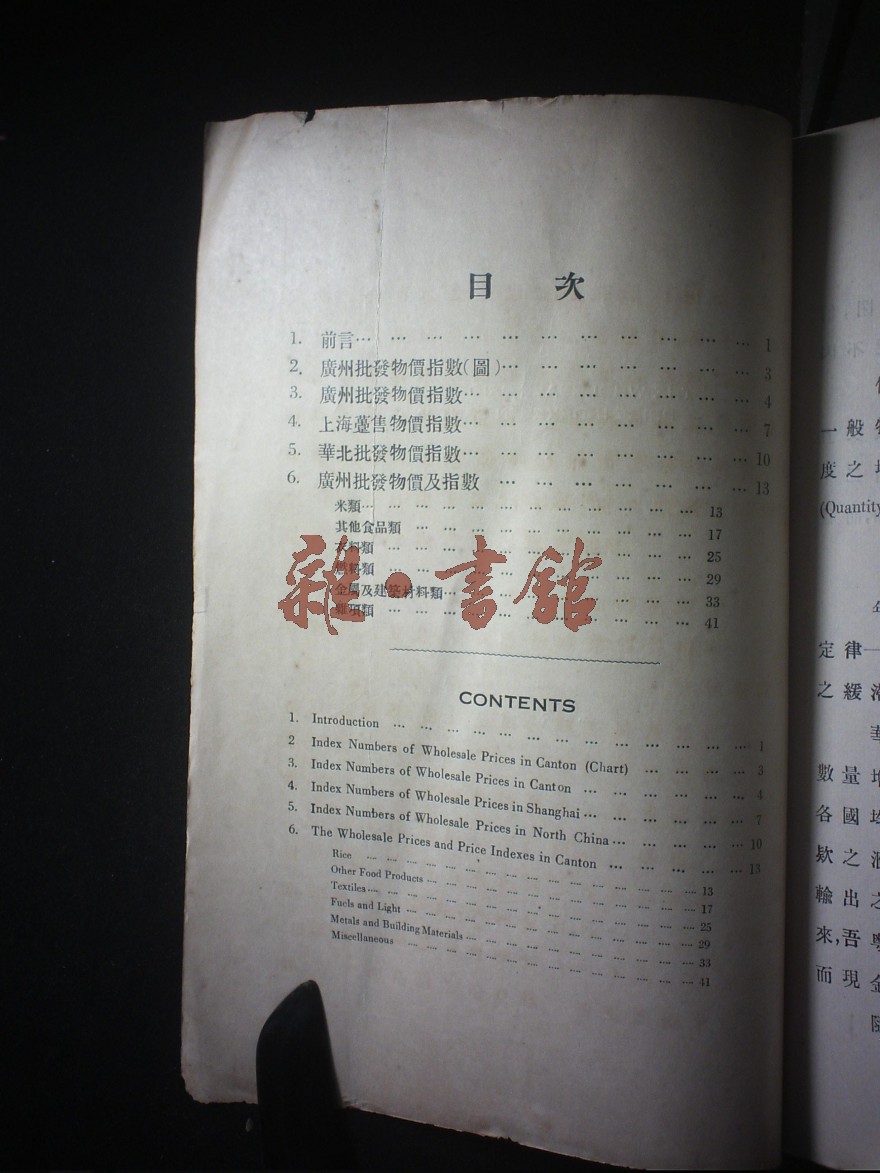 目 次
1. 前言… … … … … … … … … … … 1
2. 廣州批發物價指數(圖)… … … … … … … 3
3. 廣州批發物價指數… … … … … … … … 4
4. 上海躉售物價指數… … … … … … … … 7
5. 華北批發物價指數… … … … … … … … 10
6. 廣州批發物價及指數 … … … … … … … 13
米類… … … … … … … … … … … … … 13
其他食品類 … … … … … … … … … … … 17
衣料類 … … … … … … … … … … … … 25
燃料類 … … … … … … … … … … … … 29
金屬及建築材料類… … … … … … … … … 33
雜項類 … … … … … … … … … … … … 41
雜·書館
CONTENTS
1. Introduction … … … … … … … … … … … … … 1
2 Index Numbers of Wholesale Prices in Canton (Chart) … … … … 3
3. Index Numbers of Wholesale Prices in Canton … … … … … 4
4. Index Numbers of Wholesale Prices in Shanghai… … … … … 7
5. Index Numbers of Wholesale Prices in North China… … … … … 10
6. The Wholesale Prices and Price Indexes in Canton … … … … … 13
Rice … … … … … … … … … … … … … 13
Other Food Products … … … … … … … … … … 17
Textiles… … … … … … … … … … … … 25
Fuels and Light … … … … … … … … … … … 29
Metals and Building Materials … … … … … … … … 33
Miscellaneous … … … … … … … … … … … 41
一般
度之
(Quantity
定律—
之緩
數量
各國
欵之
輸出之
來,吾
而現金